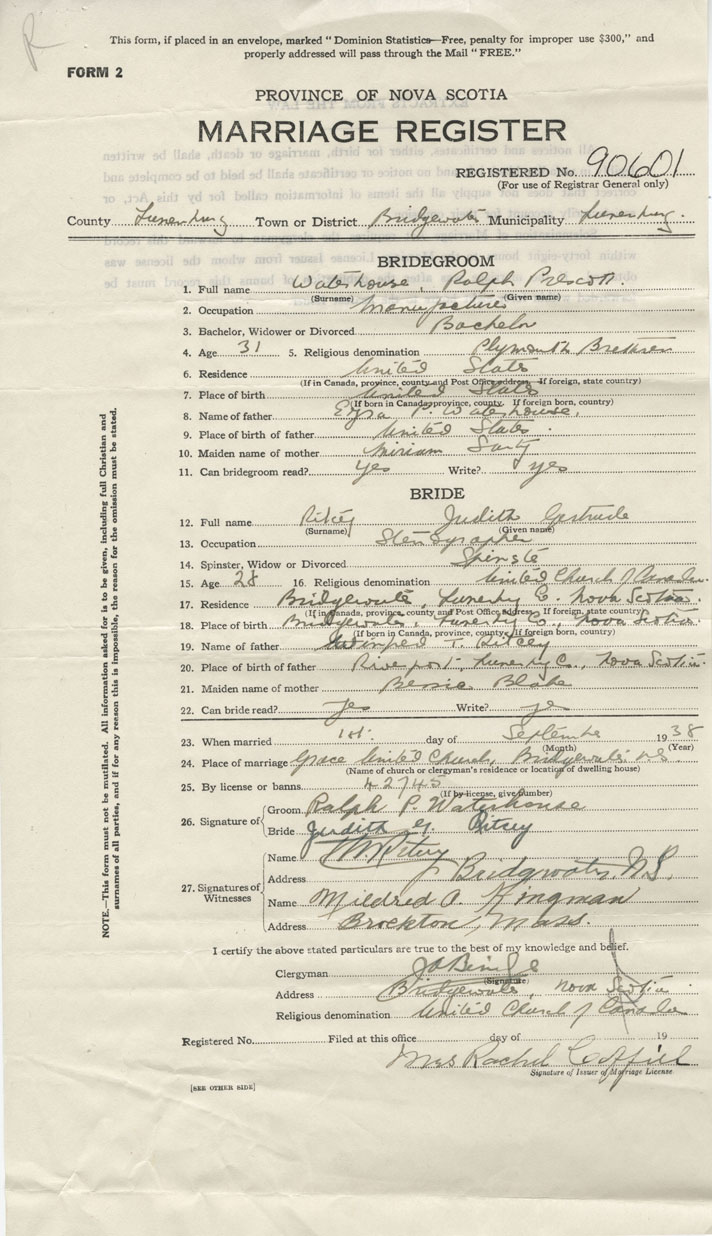 This form, if placed in an envelope, marked "Dominion Statistics—Free, penalty for improper use $300," and
properly addressed will pass through the Mail "FREE."
FORM 2
PROVINCE OF NOVA SCOTIA
MARRIAGE REGISTER
REGISTERED No. 90601
(For use of Registrar General only)
County Lunenburg Town or District Bridgewater Municipality Lunenburg.
BRIDEGROOM
1. Full name Waterhouse, Ralph Prescott.
(Surname) (Given name)
2. Occupation Manufacturer
3. Bachelor, Widower or Divorced Bachelor
4. Age 31 5. Religious denomination Plymouth Brethren
6. Residence United States
(If in Canada, province, county and Post Office address. If foreign, state country)
7. Place of birth United States
(If born in Canada, province, county. If foreign born, country)
8. Name of father Ezra P. Waterhouse,
9. Place of father United States.
10. Maiden name of mother Miriam
11. Can bridegroom read? Yes Write? yes
BRIDE
12. Full name Ritcey Judith Gertrude
(Surname) (Given name)
13. Occupation Stenographer
14. Spinster, Widow or Divorced Spinster
15. Age 28 16. Religious denomination United Church of Canada.
17. Residence Bridgewater, Lunenburg Co. Nova Scotia.
(If in Canada, province, county and Post Office Address. If foreign, state country)
18. Place of birth Bridgewater, Lunenburg Co., Nova Scotia.
(If born in Canada, province, county. If foreign born, country)
19. Name of father T. Ritcey
20. Place of birth of father Riverport, Lunenburg Co., Nova Scotia.
21. Maiden name of mother Bessie Blake
22. Can bride read? yes Write? yes
23. When married 1st. day of September 1938
(Month) (Year)
24. Place of marriage Grace United Church, Bridgewater N.S.
(Name of church or clergyman's residence or location of dwelling house)
25. By license or banns 42745
(If by license, give number)
26. Signature of Groom Ralph P. Waterhouse
Bride Judith G. Ritcey
27. Signatures of Witnesses
Name Ritcey
Address Bridgewater, N.S.
Name Mildred A. Kingman
Address Brockton, Mass.
I certify the above stated particulars are true to the best of my knowledge and belief.
Clergyman
(Signature)
Address Bridgewater, Nova Scotia
Religious denomination United Church of Canada
Registered No. Filed at this office day of 19
Mrs Rachel
Signature of Issuer of Marriage License
[SEE OTHER SIDE]
NOTE.—This form must not be mutilated. All information asked for is to be given, including full Christian and
surnames of all parties, and if for any reason this is impossible, the reason for the omission must be stated.